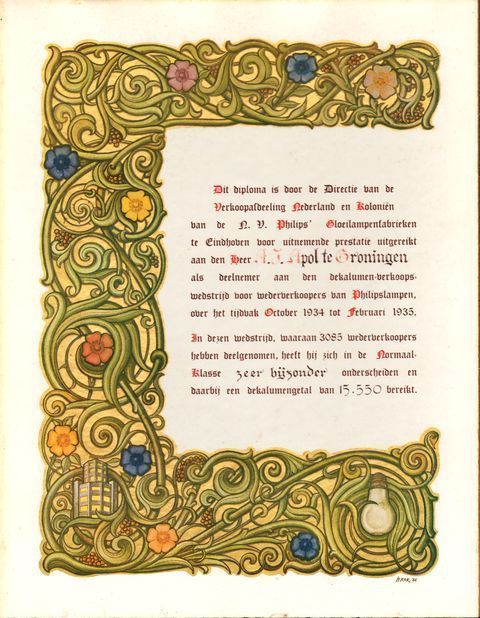 Dit diploma is door de Directie van de
Verkoopafdeeling Nederland en Koloniën
van de N. V. Philips' Gloeilampenfabrieken
te Eindhoven voor uitnemende prestatie uitgereikt
aan den Heer A. J. Apol te Groningen
als deelnemer aan den dekalumen-verkoops-
wedstrijd voor wederverkoopers van Philipslampen,
over het tijdvak October 1934 tot Februari 1935.
In dezen wedstrijd, waaraan 3085 wederverkoopers
hebben deelgenomen, heeft hij zich in de Normaal-
Klasse zeer bijzonder onderscheiden en
daarbij een dekalumengetal van 15.550 bereikt.